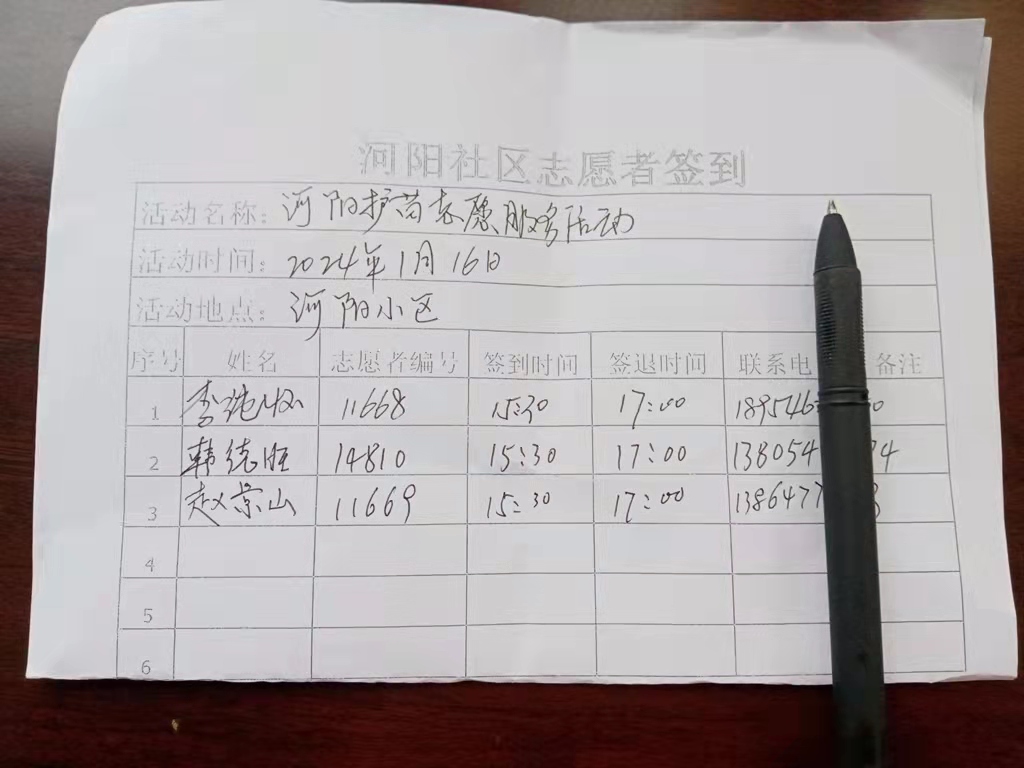 河阳社区志愿者签到
活动名称: 河阳护苗志愿服务活动
活动时间: 2024年1月16日
活动地点: 河阳小区
序号 姓名 志愿者编号 签到时间 签退时间 联系电 备注
1 李 11668 15:30 17:00 189546 0
2 韩德旺 14810 15:30 17:00 138054 4
3 赵景山 11669 15:30 17:00 1386477 3
4
5
6